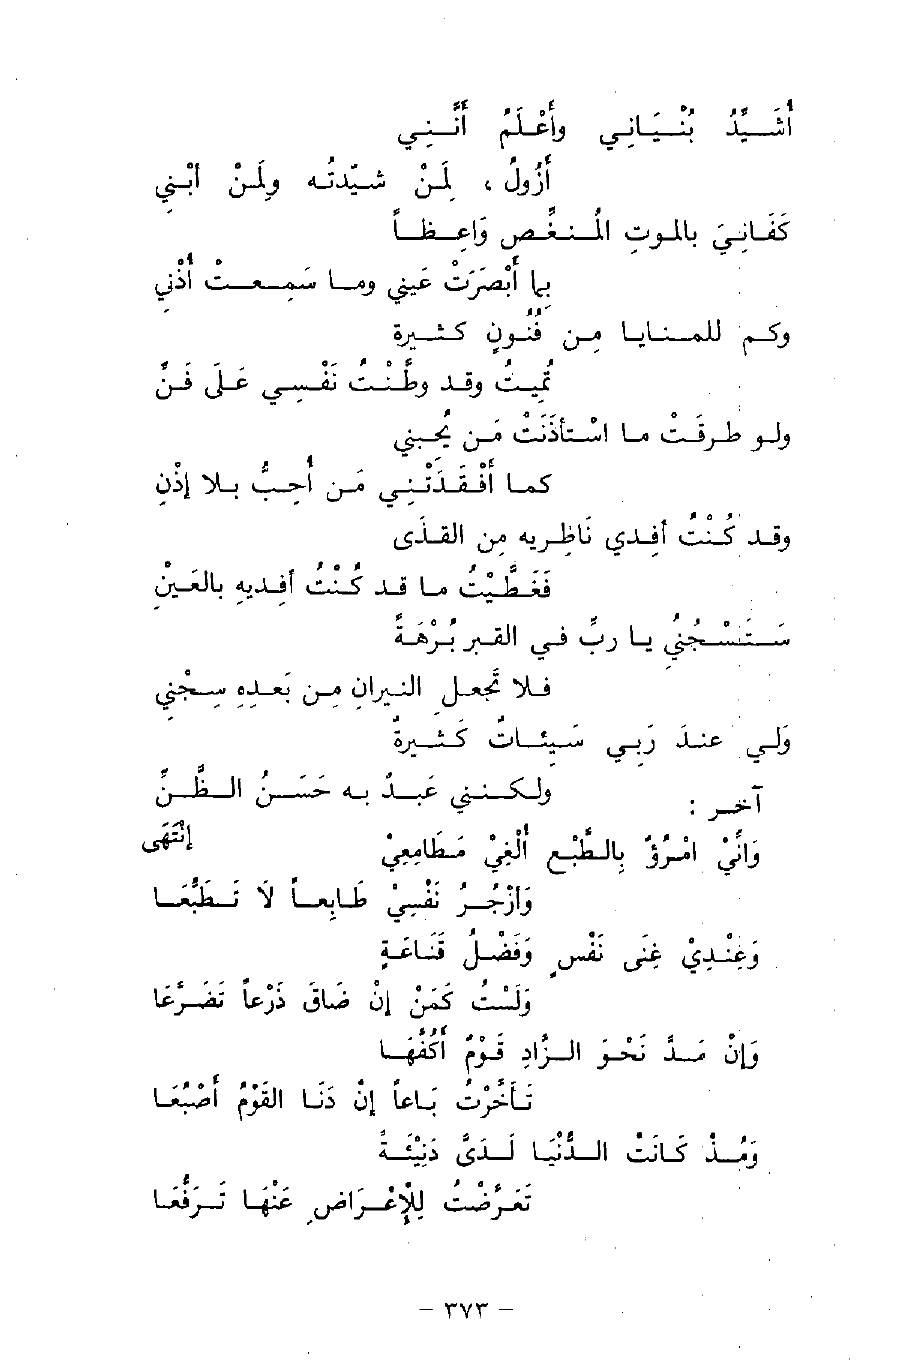 أُشَيِّدُ بُنْيَانِي وأَعْلَمُ أَنَّني
أَزُولُ ، لِمَنْ شيّدتُه ولِمَنْ أَبْنِي
كَفَانِيَ بالموتِ المُنغِّصِ وَاعِظاً
بما أَبْصَرَتْ عَيني وما سَمِعتْ أُذْنِي
وكم للمنايا مِن فُنُونٍ كثيرةٍ
تُميتُ وقد وطَّنْتُ نَفْسي عَلى فَنِّ
ولو طرقَتْ ما اسْتأذَنَتْ مَن يُحِبُّني
كما أَفْقَدَتْني مَن أُحِبُّ بلا إذْنِ
وقد كُنْتُ أفدي نَاظِريه مِن القذَى
فَغَطَّيْتُ ما قد كُنْتُ أفديه بالعَيْنِ
سَتَسْجُنُني يا ربِّ في القبر بُرْهَةً
فلا تَجْعلِ النيرانَ مِن بَعْدِه سِجْنِي
وَلي عندَ رَبي سَيِئاتٌ كثيرةٌ
ولكنني عَبدٌ به حَسَنُ الظَّنِّ
آخر :
إنْتَهَى
وَإنِّيْ امْرُؤٌ بِالطَّبْعِ أُلْغِيْ مَطَامِعِيْ
وَأَزْجُرُ نَفْسِيْ طَابِعاً لَا تَطَبُّعَا
وَعِنْدِيْ غِنَى نَفْسٍ وَفَضْلُ قَنَاعَةٍ
وَلَسْتُ كَمَنْ إنْ ضَاقَ ذَرْعاً تَضَرَّعَا
وَإنْ مَدَّ نَحْوَ الزَّادِ قَوْمٌ أَكُفَّهَا
تَأَخَّرْتُ بَاعاً إنْ دَنَا القَوْمُ أَصْبُعَا
وَمُذْ كَانَتْ الدُّنْيَا لَدَيَّ دَنِيْئَةً
تَعَرَّضْتُ لِلْإعْرَاضِ عَنْهَا تَرَفُّعَا
– ٣٧٣ –